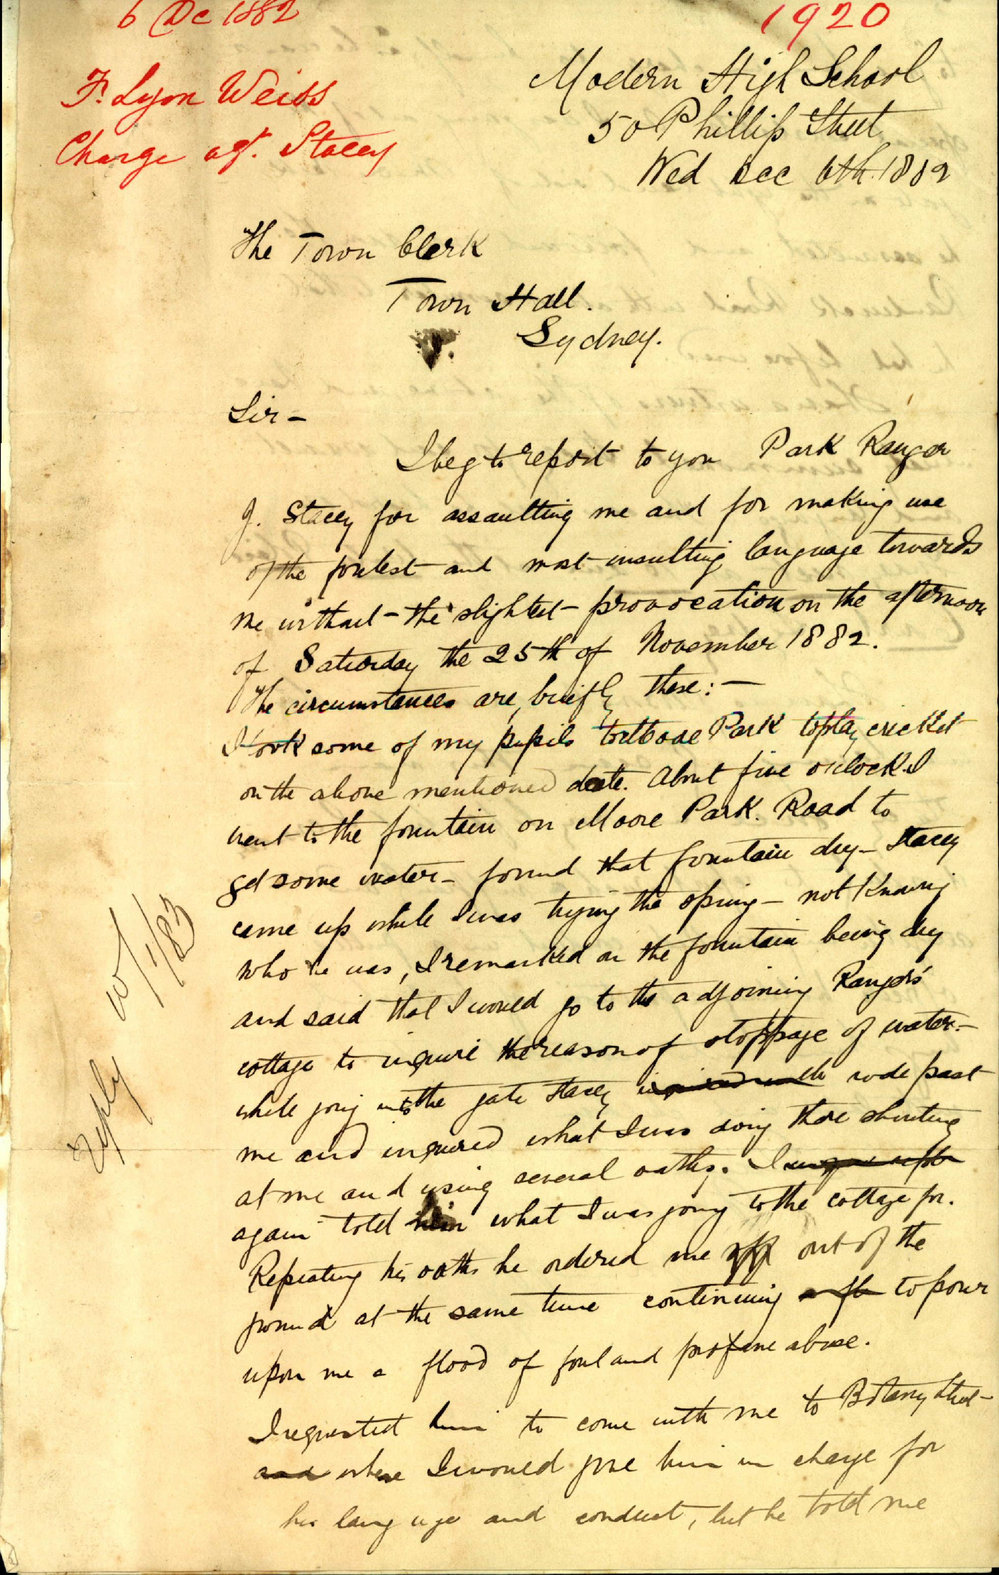 6 Dec 1882
1920
F. Lyon Weiss
Charge agt. Stacey
Modern High School
50 Phillip Street
Wed Dec 6th 1882
The Town Clerk
Town Hall.
Sydney.
Sir –
I beg to report to you Park Ranger
J. Stacey for assaulting me and for making use
of the foulest and most insulting language towards
me without the slightest provocation on the afternoon
of Saturday the 25th of November 1882.
The circumstances are, briefly these: –
I took some of my pupils to Moore Park to play cricket
on the above mentioned date. About five o'clock I
went to the fountain on Moore Park Road to
get some water – found that fountain dry – Stacey
came up while I was trying the spring – not knowing
who he was, I remarked on the fountain being dry
and said that I would go to the adjoining Ranger's
cottage to inquire the reason of stoppage of water –
while going into the gate Stacey rode past
me and inquired what I was doing there shouting
at me and using several oaths. I
again told him what I was going to the cottage for.
Repeating his oaths he ordered me off out of the
ground at the same time continuing to pour
upon me a flood of foul and profane abuse.
I requested him to come with me to Botany Street
and where I would give him in charge for
his language and conduct, but he told me
Reply 10/1/83